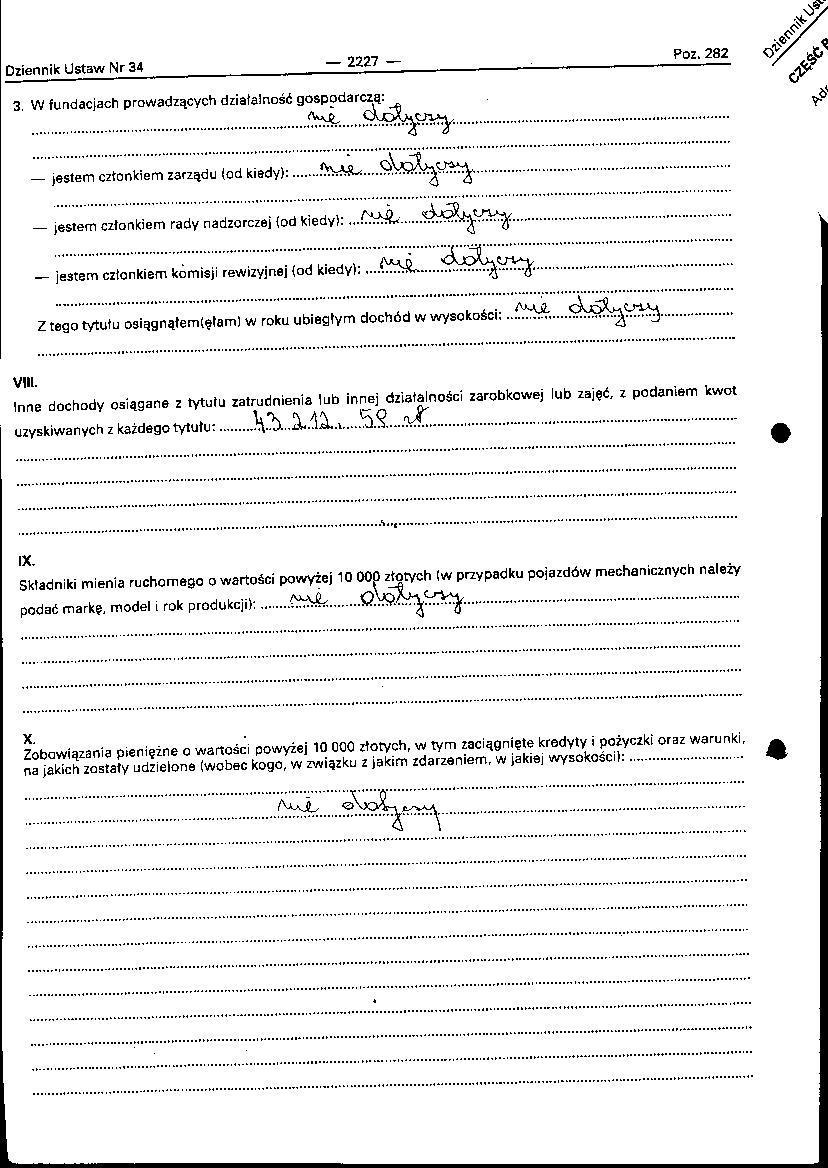 Dziennik Ustaw Nr 34 — 2227 — Poz. 282
3. W fundacjach prowadzących działalność gospodarczą:
nie dotyczy
— jestem członkiem zarządu (od kiedy): nie dotyczy
— jestem członkiem rady nadzorczej (od kiedy): nie dotyczy
— jestem członkiem komisji rewizyjnej (od kiedy): nie dotyczy
Z tego tytułu osiągnąłem(ęłam) w roku ubiegłym dochód w wysokości: nie dotyczy
VIII.
Inne dochody osiągane z tytułu zatrudnienia lub innej działalności zarobkowej lub zajęć, z podaniem kwot
uzyskiwanych z każdego tytułu: 43 212, 58 zł
IX.
Składniki mienia ruchomego o wartości powyżej 10 000 złotych (w przypadku pojazdów mechanicznych należy
podać markę, model i rok produkcji): nie dotyczy
X.
Zobowiązania pieniężne o wartości powyżej 10 000 złotych, w tym zaciągnięte kredyty i pożyczki oraz warunki,
na jakich zostały udzielone (wobec kogo, w związku z jakim zdarzeniem, w jakiej wysokości):
nie dotyczy
Dziennik
CZĘŚĆ